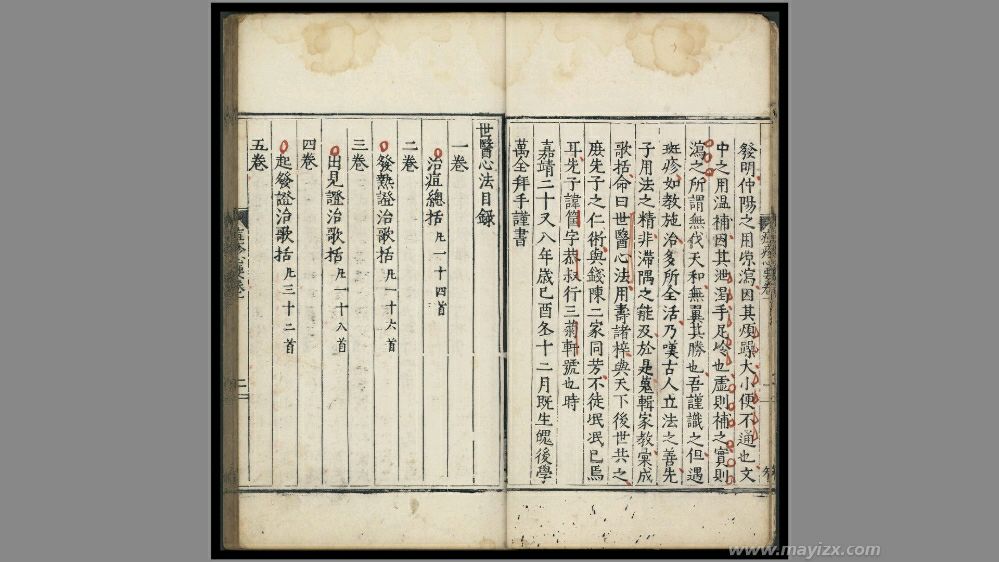 發明仲陽之用凉瀉因其煩躁大小便不通也文
中之用溫補因其泄渴手足冷也虛則補之實則
瀉之所謂無伐天和無翼其勝也吾謹識之但遇
斑疹如教施治多所全活乃嘆古人立法之善先
子用法之精非滯隅之能及於是蒐輯家教彙成
歌括命曰世醫心法用壽諸梓與天下後世共之
庶先子之仁術與錢陳二家同芳不徒泯泯已焉
耳先子諱筐字恭叔行三菊軒號也時
嘉靖二十又八年歲己酉冬十二月既生魄後學
萬全拜手謹書
世醫心法目録
一卷
治痘總括凡一十四首
二卷
發熱證治歌括凡一十六首
三卷
出見證治歌括凡一十八首
四卷
起發證治歌括凡三十二首
五卷
www.mayizx.com